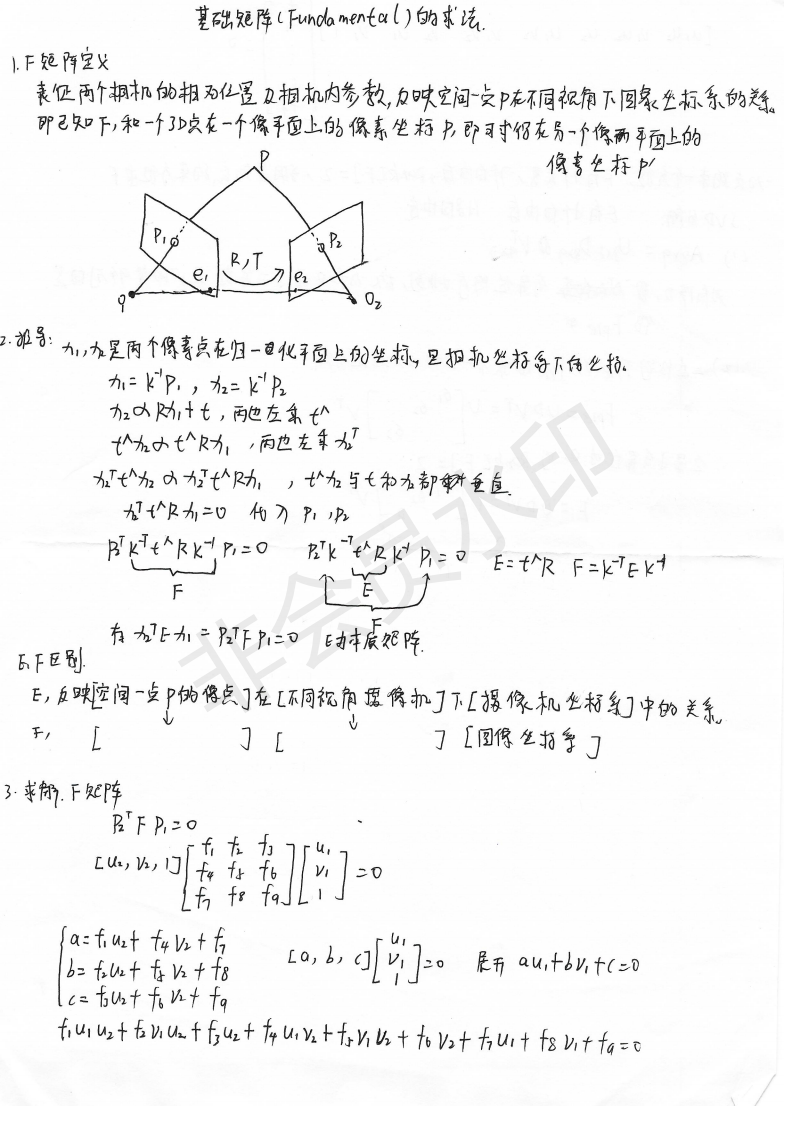 基础矩阵(Fundamental)的求法.
1. F矩阵定义
表征两个相机的相对位置及相机内参数,反映空间一点P在不同视角下图象坐标系的关系.
即已知F,和一个3D点在一个像平面上的像素坐标P,即可求得在另一个像平面上的
像素坐标P'
P
P₁
R,T
P₂
e₁
e₂
O₁
O₂
2.推导: x₁,x₂是两个像素点在归一化平面上的坐标,是相机坐标系下的坐标.
x₁=K⁻¹P₁ , x₂=K⁻¹P₂
x₂∝Rx₁+t , 两边左乘t^
t^x₂∝t^Rx₁ , 两边左乘x₂ᵀ
x₂ᵀt^x₂∝x₂ᵀt^Rx₁ , t^x₂与t和x₂都垂直.
x₂ᵀt^Rx₁=0 代入P₁,P₂
P₂ᵀK⁻ᵀt^RK⁻¹P₁=0 P₂ᵀK⁻ᵀt^RK⁻¹P₁=0 E=t^R F=K⁻ᵀEK⁻¹
F E
F
有x₂ᵀEx₁=P₂ᵀFP₁=0 E为本质矩阵.
E,F区别.
E,反映[空间一点P的像点]在[不同视角摄像机]下[摄像机坐标系]中的关系.
F, [↓] [↓] [图像坐标系]
3.求解.F矩阵
P₂ᵀFP₁=0
[u₂,v₂,1][f₁ f₂ f₃ f₄ f₅ f₆ f₇ f₈ f₉][u₁ v₁ 1]=0
a=f₁u₂+f₄v₂+f₇
b=f₂u₂+f₅v₂+f₈
c=f₃u₂+f₆v₂+f₉
[a,b,c][u₁ v₁ 1]=0 展开 au₁+bv₁+c=0
f₁u₁u₂+f₂v₁u₂+f₃u₂+f₄u₁v₂+f₅v₁v₂+f₆v₂+f₇u₁+f₈v₁+f₉=0
非会员水印